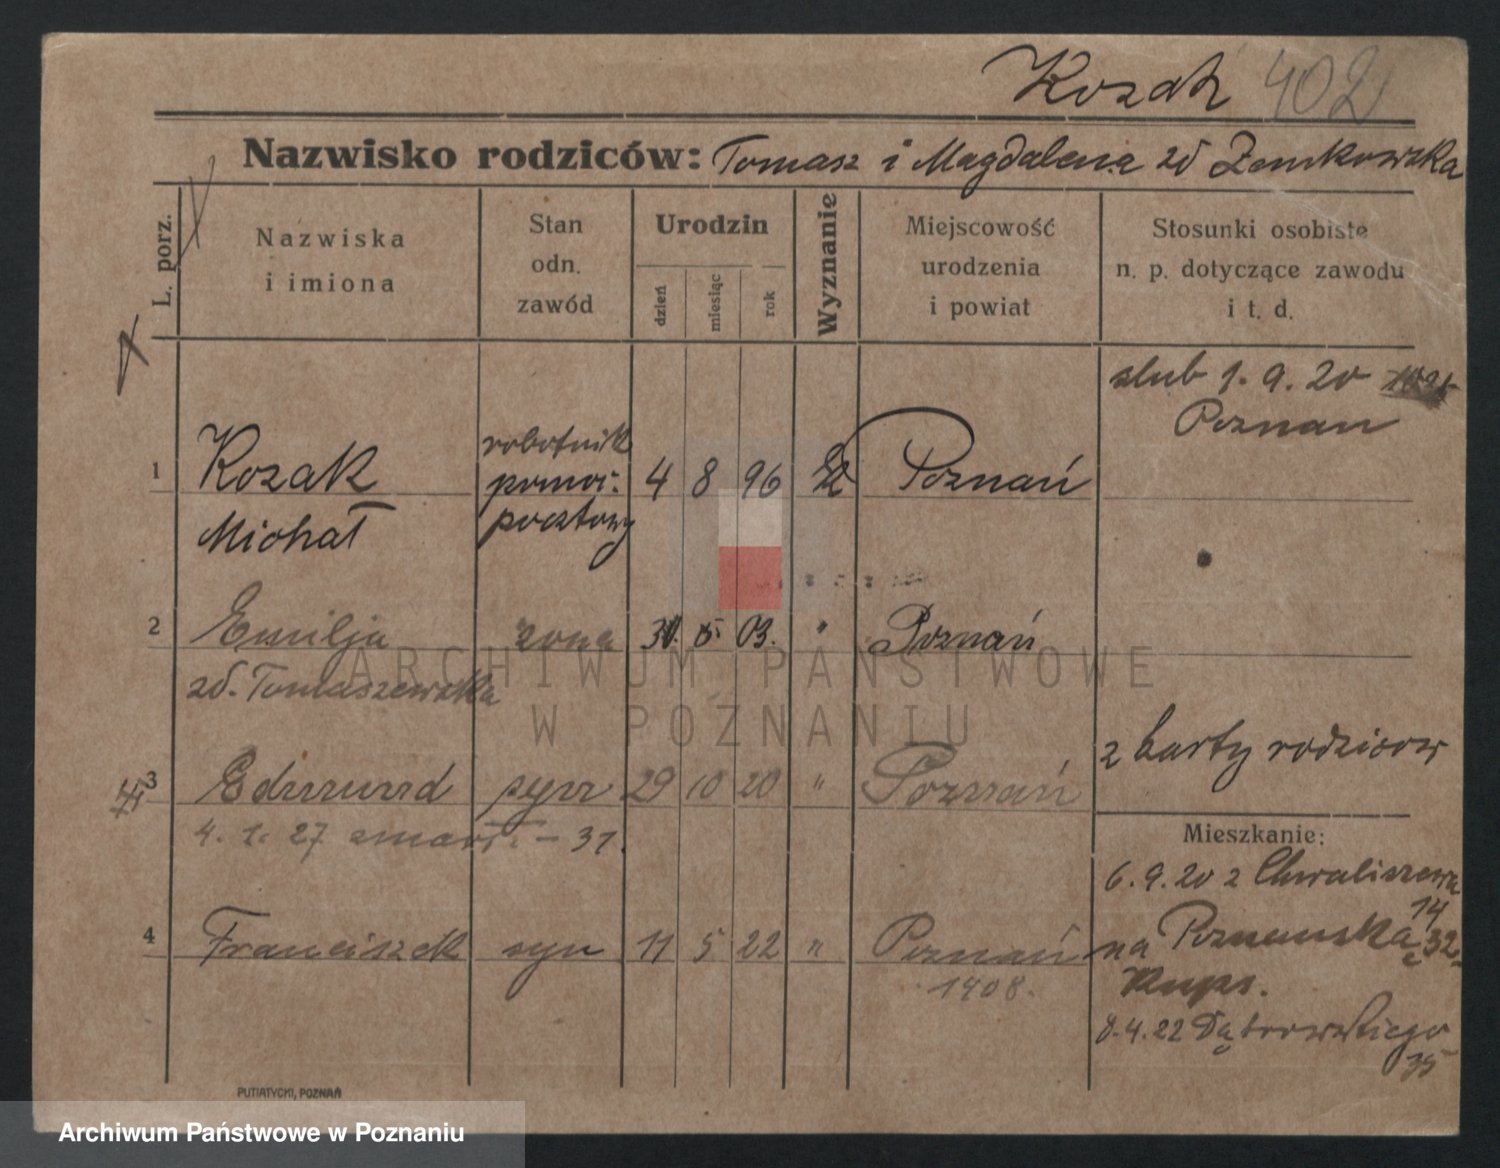 Kozak 402
Nazwisko rodziców: Tomasz i Magdalena zd Zemkowska
L. porz.
Nazwiska
i imiona
Stan
odn.
zawód
Urodzin
dzień
miesiąc
rok
Wyznanie
Miejscowość
urodzenia
i powiat
Stosunki osobiste
n. p. dotyczące zawodu
i t. d.
slub 1. 9. 20
Poznan
robotnik
1 Kozak pomoc. 4 8 96 Poznań
Michał pocztowy
2 Emilja zona 5. 03. " Poznań
zd. Tomaszewska
z karty rodzicow
3 Edmund syn 29 10 20 " Poznań
4. 1. 27 zmarł. - 31.
Mieszkanie:
6. 9. 20 z Chwaliszewa
14
4 Franciszek syn 11 5 22 " Poznań
na Poznanska 32
1408.
8. 4. 22 Dąbrowskiego
35
PUTIATYCKI, POZNAŃ
ARCHIWUM PAŃSTWOWE
W POZNANIU
Archiwum Państwowe w Poznaniu